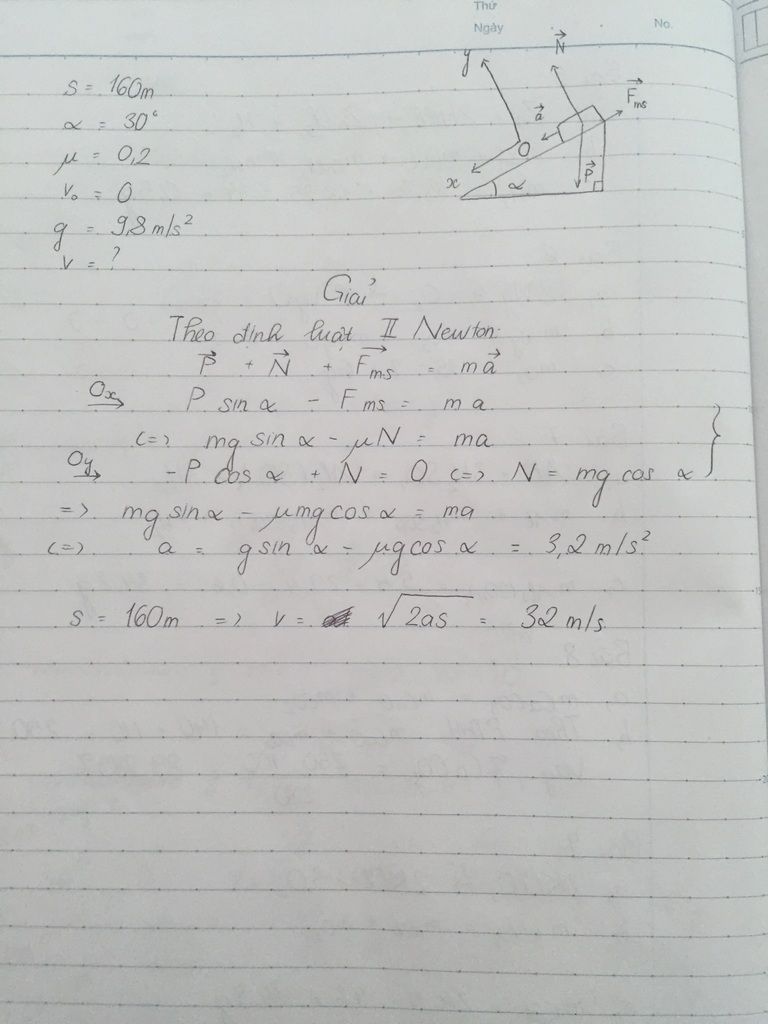 Thứ
Ngày
No.
s = 160m
α = 30°
μ = 0,2
v₀ = 0
g = 9,8 m/s²
v = ?
y
N⃗
F⃗ms
a⃗
O
P⃗
x
α
Giải
Theo định luật II Newton:
P⃗ + N⃗ + F⃗ms = ma⃗
Ox→ P sin α - Fms = ma
<=> mg sin α - μN = ma
Oy→ -P cos α + N = 0 <=> N = mg cos α }
=> mg sin α - μmg cos α = ma
<=> a = g sin α - μg cos α = 3,2 m/s²
s = 160m => v = √2as = 32 m/s